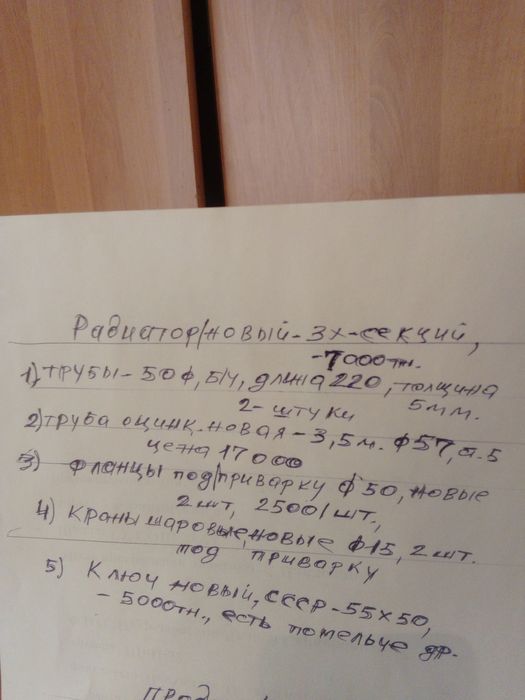 Радиатор/новый - 3х-секций,
-7000тн.
1) трубы - 50ф, б/у, длина 220, толщина
2-штуки 5мм.
2) труба оцинк. новая - 3,5м. ф57, а.5
цена 17000
3) фланцы под/приварку ф50, новые
2шт, 2500/шт.,
4) краны шаровые, новые ф15, 2шт.
под приварку
5) Ключ новый, СССР - 55х50,
- 5000тн., есть помельче др.